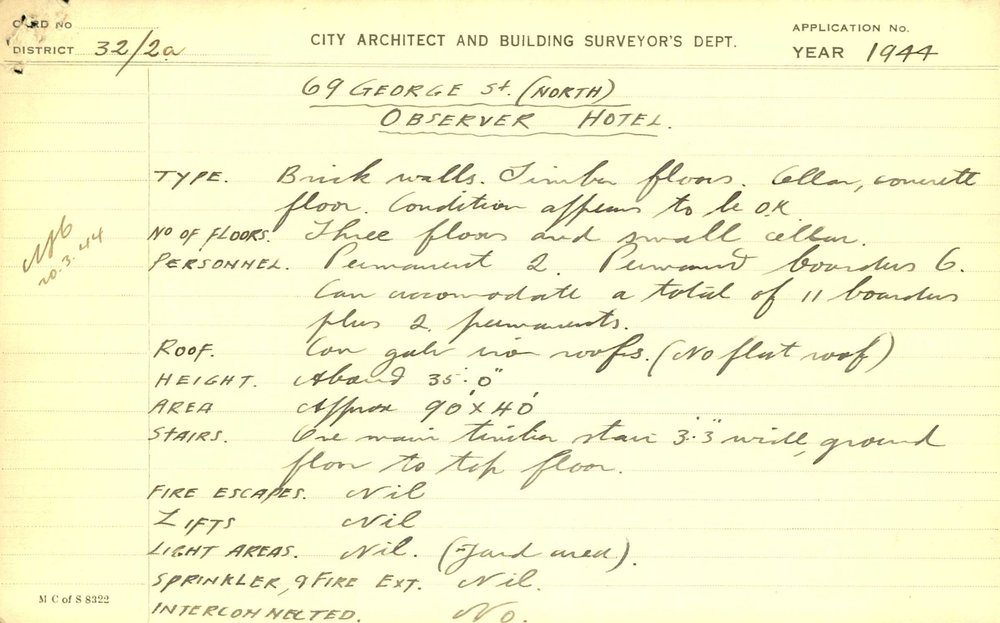 CARD NO
DISTRICT 32/2a
CITY ARCHITECT AND BUILDING SURVEYOR'S DEPT.
APPLICATION No.
YEAR 1944
69 GEORGE St. (NORTH)
OBSERVER HOTEL.
TYPE. Brick walls. Timber floors. Cellar, concrete
floor. Condition appears to be O.K.
NO OF FLOORS. Three floors and small cellar.
PERSONNEL. Permanent 2. Permanent boarders 6.
Can accomodate a total of 11 boarders
plus 2 permanents.
ROOF. Cor galv iron roofs. (No flat roof)
HEIGHT. About 35'.0"
AREA Approx 90' x 40'
STAIRS. One main timber stair 3'.3" wide, ground
floor to top floor.
FIRE ESCAPES. Nil
LIFTS Nil
LIGHT AREAS. Nil. (Yard area).
SPRINKLER, & FIRE EXT. Nil.
INTERCONNECTED. No.
20.3.44
M C of S 8322